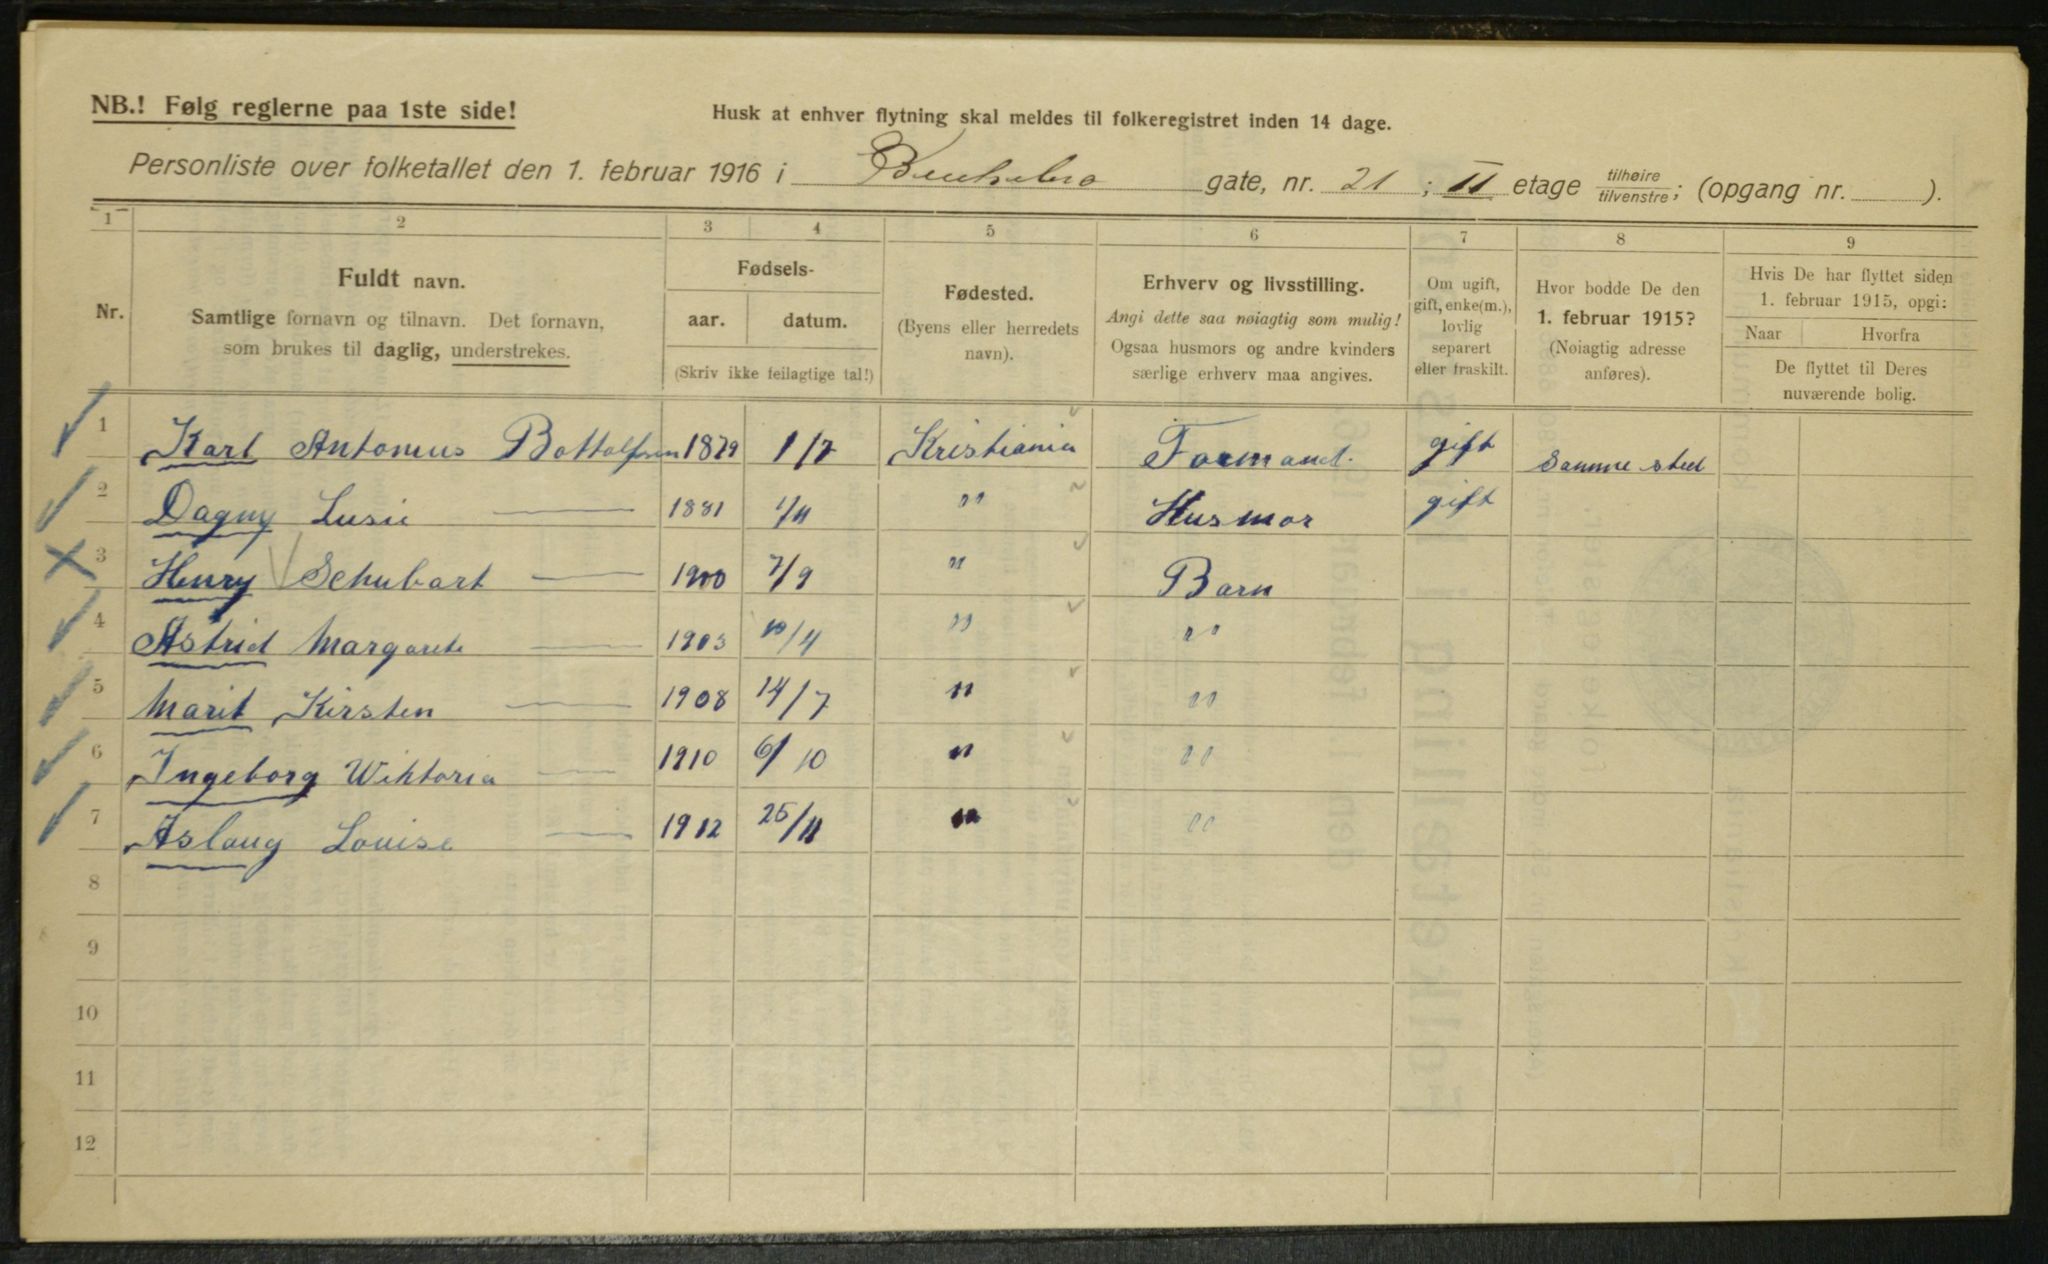 NB.! Følg reglerne paa 1ste side!
Husk at enhver flytning skal meldes til folkeregistret inden 14 dage.
Personliste over folketallet den 1. februar 1916 i gate, nr. 21 ; II etage tilhøire tilvenstre ; (opgang nr. ).
1 2 3 4 5 6 7 8 9
Nr.
Fuldt navn.
Samtlige fornavn og tilnavn. Det fornavn,
som brukes til daglig, understrekes.
Fødsels-
aar. datum.
(Skriv ikke feilagtige tal!)
Fødested.
(Byens eller herredets
navn).
Erhverv og livsstilling.
Angi dette saa nøiagtig som mulig!
Ogsaa husmors og andre kvinders
særlige erhverv maa angives.
Om ugift,
gift, enke(m.),
lovlig
separert
eller fraskilt.
Hvor bodde De den
1. februar 1915?
(Nøiagtig adresse
anføres).
Hvis De har flyttet siden
1. februar 1915, opgi:
Naar Hvorfra
De flyttet til Deres
nuværende bolig.
1 Karl Antonius Bottolfsen 1879 1/7 Kristiania Formand. gift Samme sted
2 Dagny Lusie — 1881 1/11 " Husmor gift
3 Henry Schubart — 1900 7/9 " Barn
4 Astrid Margarete — 1903 10/4 " "
5 Marit Kirsten — 1908 14/7 " "
6 Ingeborg Wiktoria — 1910 6/10 " "
7 Aslaug Louise — 1912 25/11 " "
8
9
10
11
12